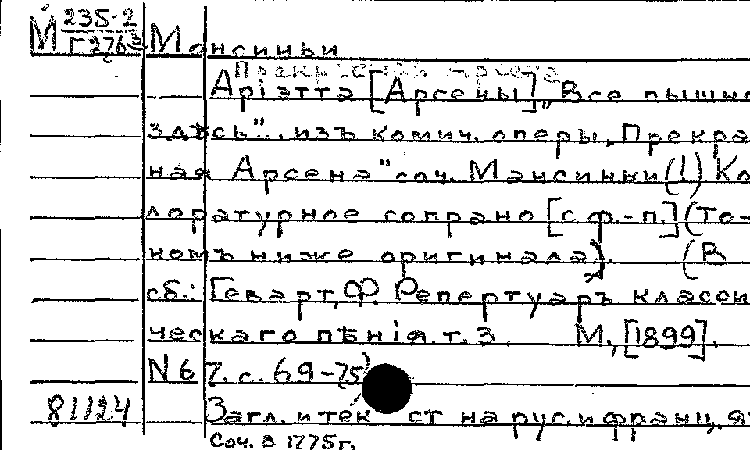 М 235-2 Монсиньи
Г 276
Аріэтта [Арсены] „Все пышно
здѣсь", изъ комич. оперы „Прекрас
ная Арсена" соч. Монсиньи (!) Ко
лоратурное сопрано [с ф.-п.] (То-
номъ ниже оригинала). (В
сб.: Геварт, Ф. Репертуаръ класси
ческаго пѣнія. т. 3 М., [1899].
N 67. с. 69-75)
81124 Загл. и текст на рус. и франц. яз
Соч. в 1775 г.